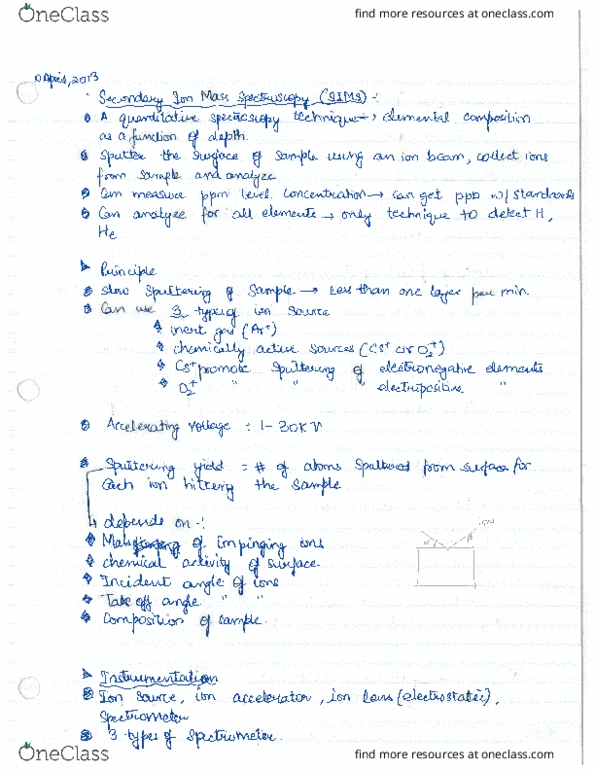 OneClass
find more resources at oneclass.com
April, 2013
Secondary Ion Mass Spectroscopy (SIMS) :-
A quantitative spectroscopy technique → elemental composition
as a function of depth.
Sputter the surface of sample using an ion beam, collect ions
from sample and analyze
Can measure ppm level concentration → can get ppb w/ standards
Can analyze for all elements → only technique to detect H,
He
Principle
slow sputtering of sample → less than one layer per min.
Can use types of ion source
inert gas (Ar+)
chemically active sources (Cs+ or O2+)
Cs+ promote sputtering of electronegative elements
O2+ " " " electropositive "
Accelerating voltage : 1-30KV
Sputtering yield = # of atoms sputtered from surface for
each ion hitting the sample
depends on -:
Mass of impinging ions
chemical activity of surface.
Incident angle of ions
Take off angle " "
Composition of sample.
Instrumentation
Ion source, ion accelerator, ion lens (electrostatic),
Spectrometer
3 types of spectrometer.
OneClass
find more resources at oneclass.com